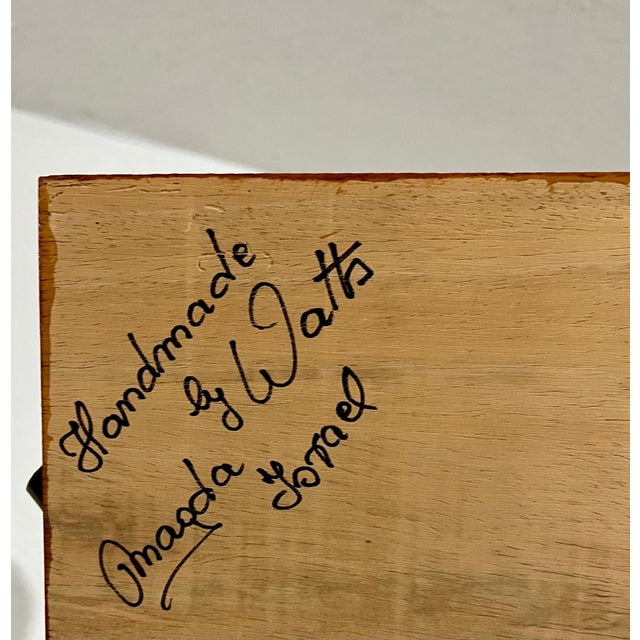 Handmade
by
Magda Watts
Israel